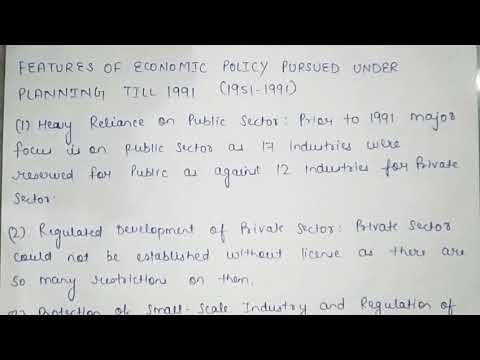 FEATURES OF ECONOMIC POLICY PURSUED UNDER
PLANNING TILL 1991 (1951-1991)
(1) Heavy Reliance on Public Sector: Prior to 1991 major
focus is on public sector as 17 industries were
reserved for Public as against 12 industries for Private
Sector.
(2) Regulated Development of Private Sector: Private Sector
could not be established without license as there are
so many restrictions on them.
Protection of Small-Scale Industry and Regulation of